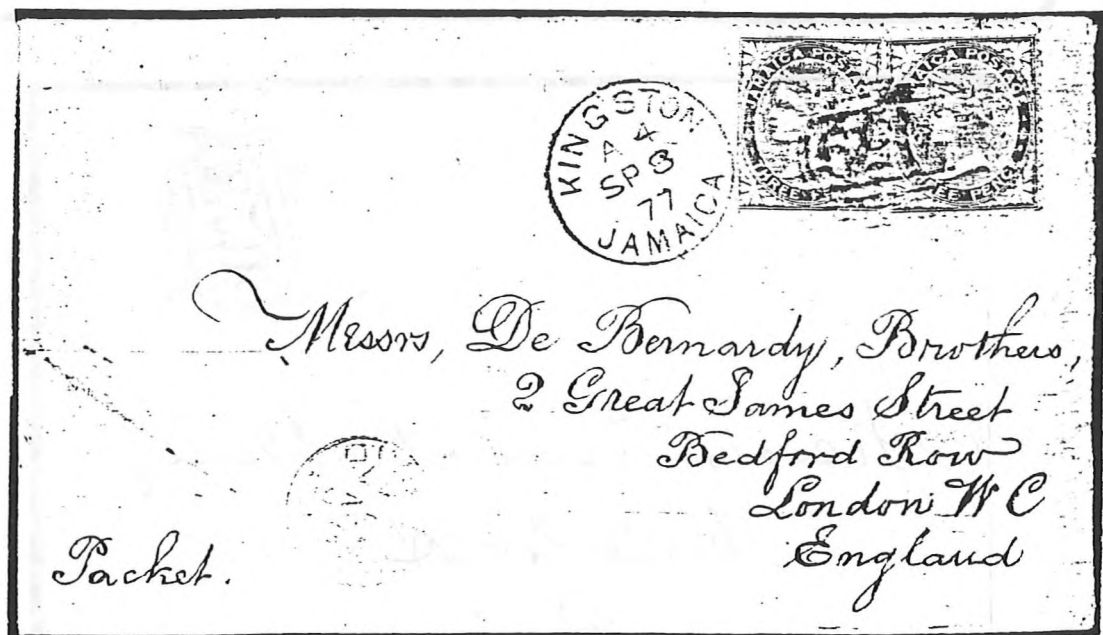 JAMAICA POSTAGE JAMAICA POSTAGE
THREE PENCE
KINGSTON
A 4
SP 8
77
JAMAICA
Messrs, De Bernardy, Brothers,
2 Great James Street
Bedford Row
London W C
England
Packet.